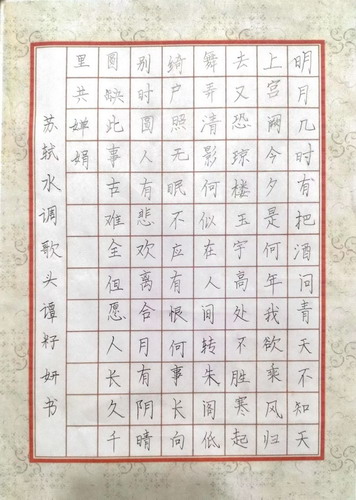 明月几时有把酒问青天不知天
上宫阙今夕是何年我欲乘风归
去又恐琼楼玉宇高处不胜寒起
舞弄清影何似在人间转朱阁低
绮户照无眠不应有恨何事长向
别时圆人有悲欢离合月有阴晴
圆缺此事古难全但愿人长久千
里共婵娟
苏轼水调歌头谭籽妍书